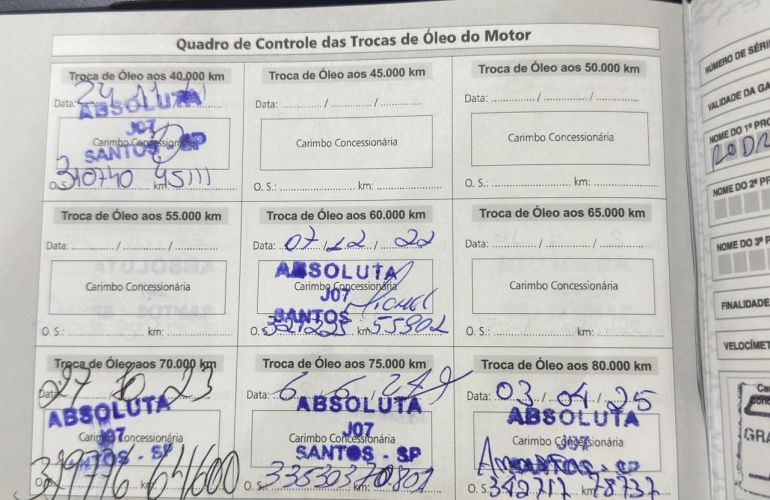 Quadro de Controle das Trocas de Óleo do Motor
Troca de Óleo aos 40.000 km
Data:
ABSOLUTA
J07
Carimbo Concessionária
SANTOS - SP
O. S.: 310740 km: 45111
Troca de Óleo aos 45.000 km
Data: ......../......../........
Carimbo Concessionária
O. S.: ........ km: ........
Troca de Óleo aos 50.000 km
Data: ......../......../........
Carimbo Concessionária
O. S.: ........ km: ........
Troca de Óleo aos 55.000 km
Data: ......../......../........
Carimbo Concessionária
O. S.: ........ km: ........
Troca de Óleo aos 60.000 km
Data: 07/12/22
ABSOLUTA
Carimbo Concessionária
J07
SANTOS
O. S. 55802
Troca de Óleo aos 65.000 km
Data: ......../......../........
Carimbo Concessionária
O. S.: ........ km: ........
Troca de Óleo aos 70.000 km
Data: 23
ABSOLUTA
J07
Carimbo Concessionária
NTOS - SP
64600
Troca de Óleo aos 75.000 km
Data: 6 6 24
ABSOLUTA
J07
Carimbo Concessionária
SANTOS - SP
O. S.
Troca de Óleo aos 80.000 km
Data: 03/04/25
ABSOLUTA
J07
Carimbo Concessionária
O. S.: 342717 78737
NÚMERO DE SÉRI
VALIDADE DA GA
NOME DO 1º PRO
RODR
NOME DO 2º PR
NOME DO 3º P
FINALIDADE
VELOCÍMET
GRA